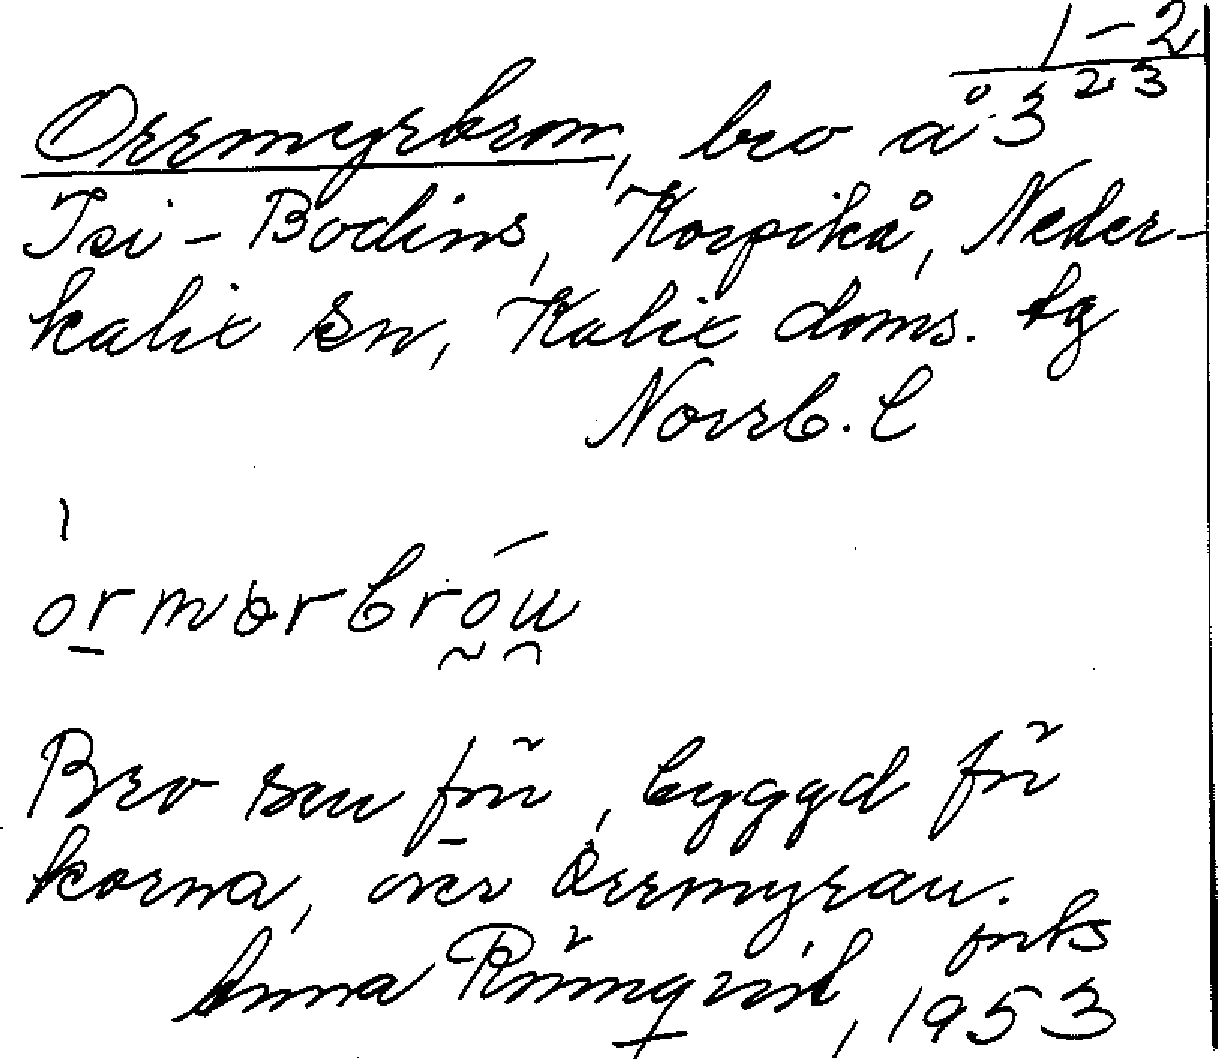 1-2
23
Orrmyrbron, bro å 3
Isi-Bodins, Korpikå, Neder-
kalix sn, Kalix doms. tg
Norrb. l
ormərbrōu
Bro sen förr, byggd för
korna, över Orrmyran.
Anna Rönnqvist, 1953